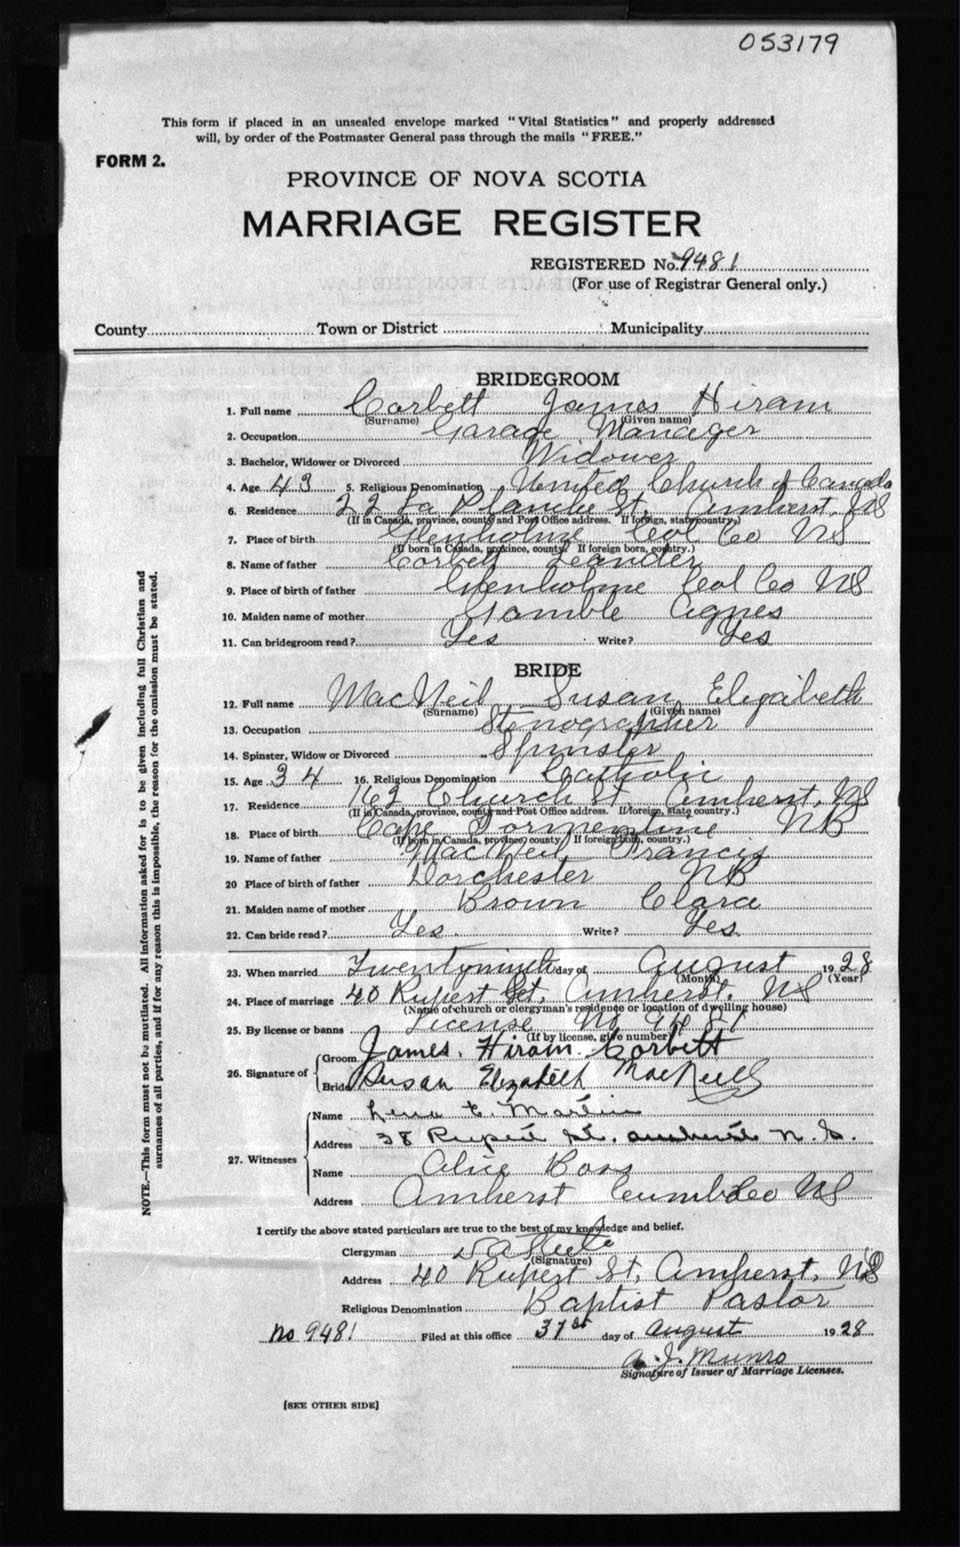 053179
This form if placed in an unsealed envelope marked "Vital Statistics" and properly addressed
will, by order of the Postmaster General pass through the mails "FREE."
FORM 2.
PROVINCE OF NOVA SCOTIA
MARRIAGE REGISTER
REGISTERED No. 9481
(For use of Registrar General only.)
County Town or District Municipality
BRIDEGROOM
1. Full name Corbett James Hiram
(Surname) (Given name)
2. Occupation Garage Manager
3. Bachelor, Widower or Divorced Widower
4. Age 43 5. Religious Denomination United Church of Canada
6. Residence 22 La Planche St. Amherst, NS
(If in Canada, province, county and Post Office address. If foreign, state country.)
7. Place of birth Glenholme Col Co NS
(If born in Canada, province, county. If foreign born, country.)
8. Name of father Corbett Leander
9. Place of birth of father Glenholme Col Co NS
10. Maiden name of mother Gamble Agnes
11. Can bridegroom read? Yes Write? Yes
BRIDE
12. Full name MacNeil Susan Elizabeth
(Surname) (Given name)
13. Occupation Stenographer
14. Spinster, Widow or Divorced Spinster
15. Age 34 16. Religious Denomination Catholic
17. Residence 162 Church St. Amherst, NS
(If in Canada, province, county and Post Office address. If foreign, state country.)
18. Place of birth Cape Tormentine NB
(If born in Canada, province, county If foreign born, country.)
19. Name of father MacNeil Francis
20 Place of birth of father Dorchester NB
21. Maiden name of mother Brown Clara
22. Can bride read? Yes. Write? Yes.
23. When married Twentyninth day of August 1928
(Month) (Year)
24. Place of marriage 40 Rupert St, Amherst, NS
(Name of church or clergyman's residence or location of dwelling house)
25. By license or banns License No 9481
(If by license, give number)
26. Signature of Groom James. Hiram. Corbett
Bride Susan Elizabeth MacNeill
27. Witnesses
Name Lena E. Martin
Address 38 Rupert St. Amherst N. S.
Name Alice
Address Amherst Cumb Co NS
I certify the above stated particulars are true to the best of my knowledge and belief.
Clergyman
(Signature)
Address 40 Rupert St, Amherst, NS
Religious Denomination Baptist Pastor
No 9481 Filed at this office 31st day of August 1928
A. J. Munro
Signature of Issuer of Marriage Licenses.
[SEE OTHER SIDE]
NOTE.—This form must not be mutilated. All information asked for is to be given including full Christian and
surnames of all parties, and if for any reason this is impossible, the reason for the omission must be stated.